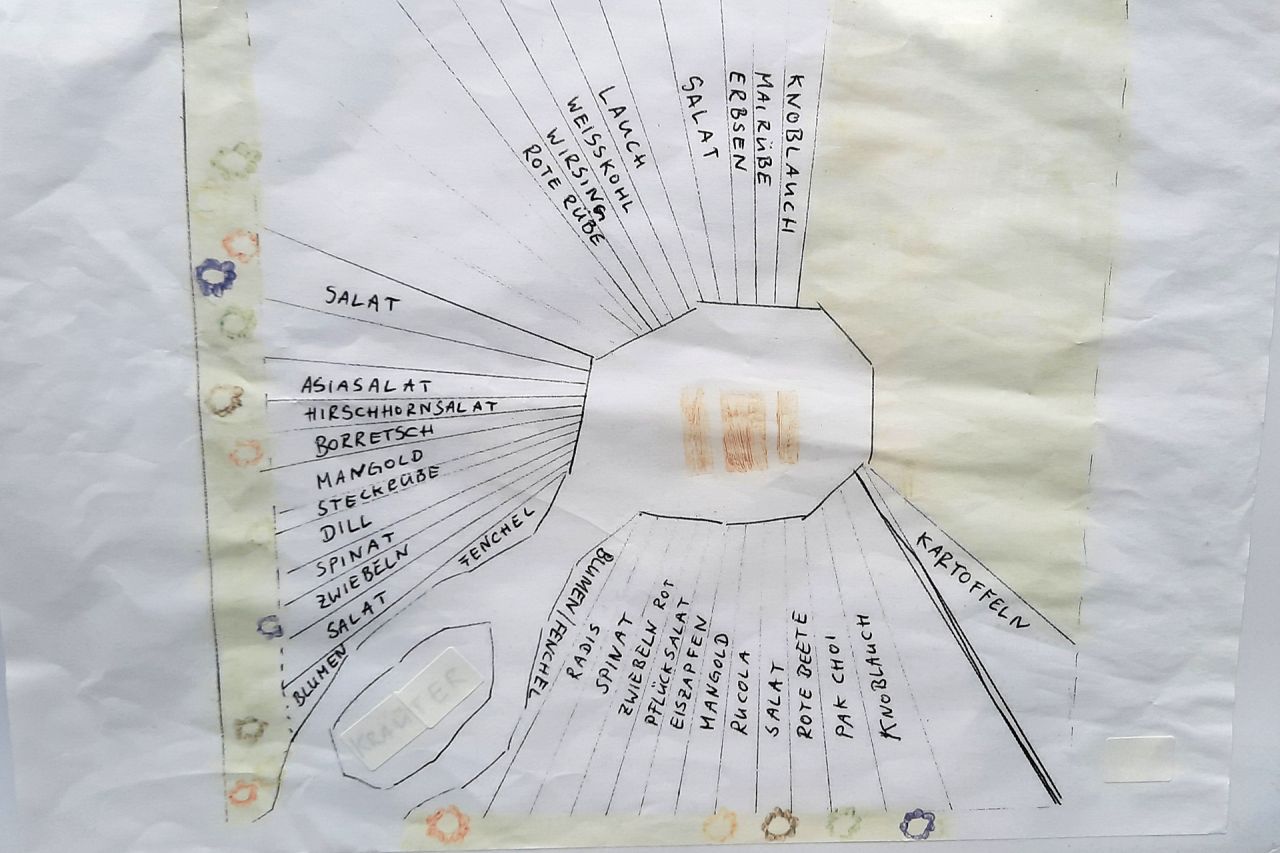 LAUCH
WEISSKOHL
WIRSING
ROTE RÜBE
SALAT
ERBSEN
MAIRÜBE
KNOBLAUCH
SALAT
ASIASALAT
HIRSCHHORNSALAT
BORRETSCH
MANGOLD
STECKRÜBE
DILL
SPINAT
ZWIEBELN
SALAT
BLUMEN
FENCHEL
KRÄUTER
BLUMEN/FENCHEL
RADIS
SPINAT
ZWIEBELN ROT
PFLÜCKSALAT
EISZAPFEN
MANGOLD
RUCOLA
SALAT
ROTE BEETE
PAK CHOI
KNOBLAUCH
KARTOFFELN